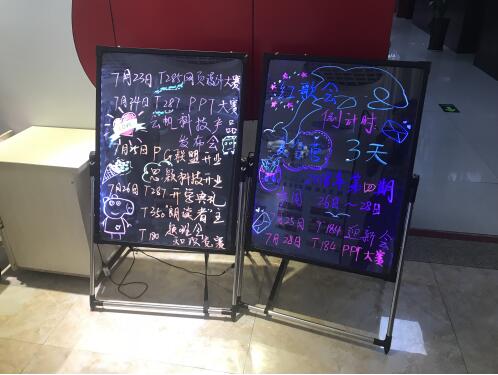 7月23日 T285网页设计大赛
7月24日 T287 PPT大赛
云帆科技产品
发布会
7月25日 P 联盟开业
思数科技开业
7月26日 T287开营典礼
T350朗读者
T180 知识竞赛
红歌会
倒计时
3天
第四期
26日~28日
月25日 T184迎新会
7月28日 T184 PPT大赛